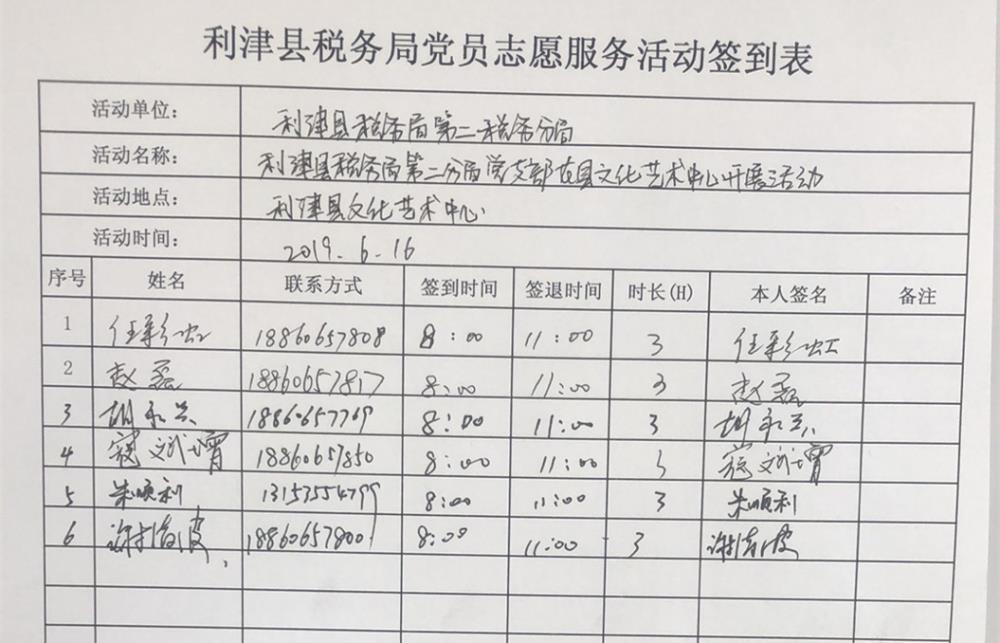 利津县税务局党员志愿服务活动签到表
活动单位: 利津县税务局第二税务分局
活动名称: 利津县税务局第二分局党支部在县文化艺术中心开展活动
活动地点: 利津县文化艺术中心
活动时间: 2019.6.16
序号 姓名 联系方式 签到时间 签退时间 时长(H) 本人签名 备注
1 任彩虹 18860657808 8:00 11:00 3 任彩虹
2 赵磊 18860657817 8:00 11:00 3 赵磊
3 胡永兴 18860657769 8:00 11:00 3 胡永兴
4 寇斌霄 18860657850 8:00 11:00 3 寇斌霄
5 朱顺利 13153554799 8:00 11:00 3 朱顺利
6 18860657800 8:00 11:00 3